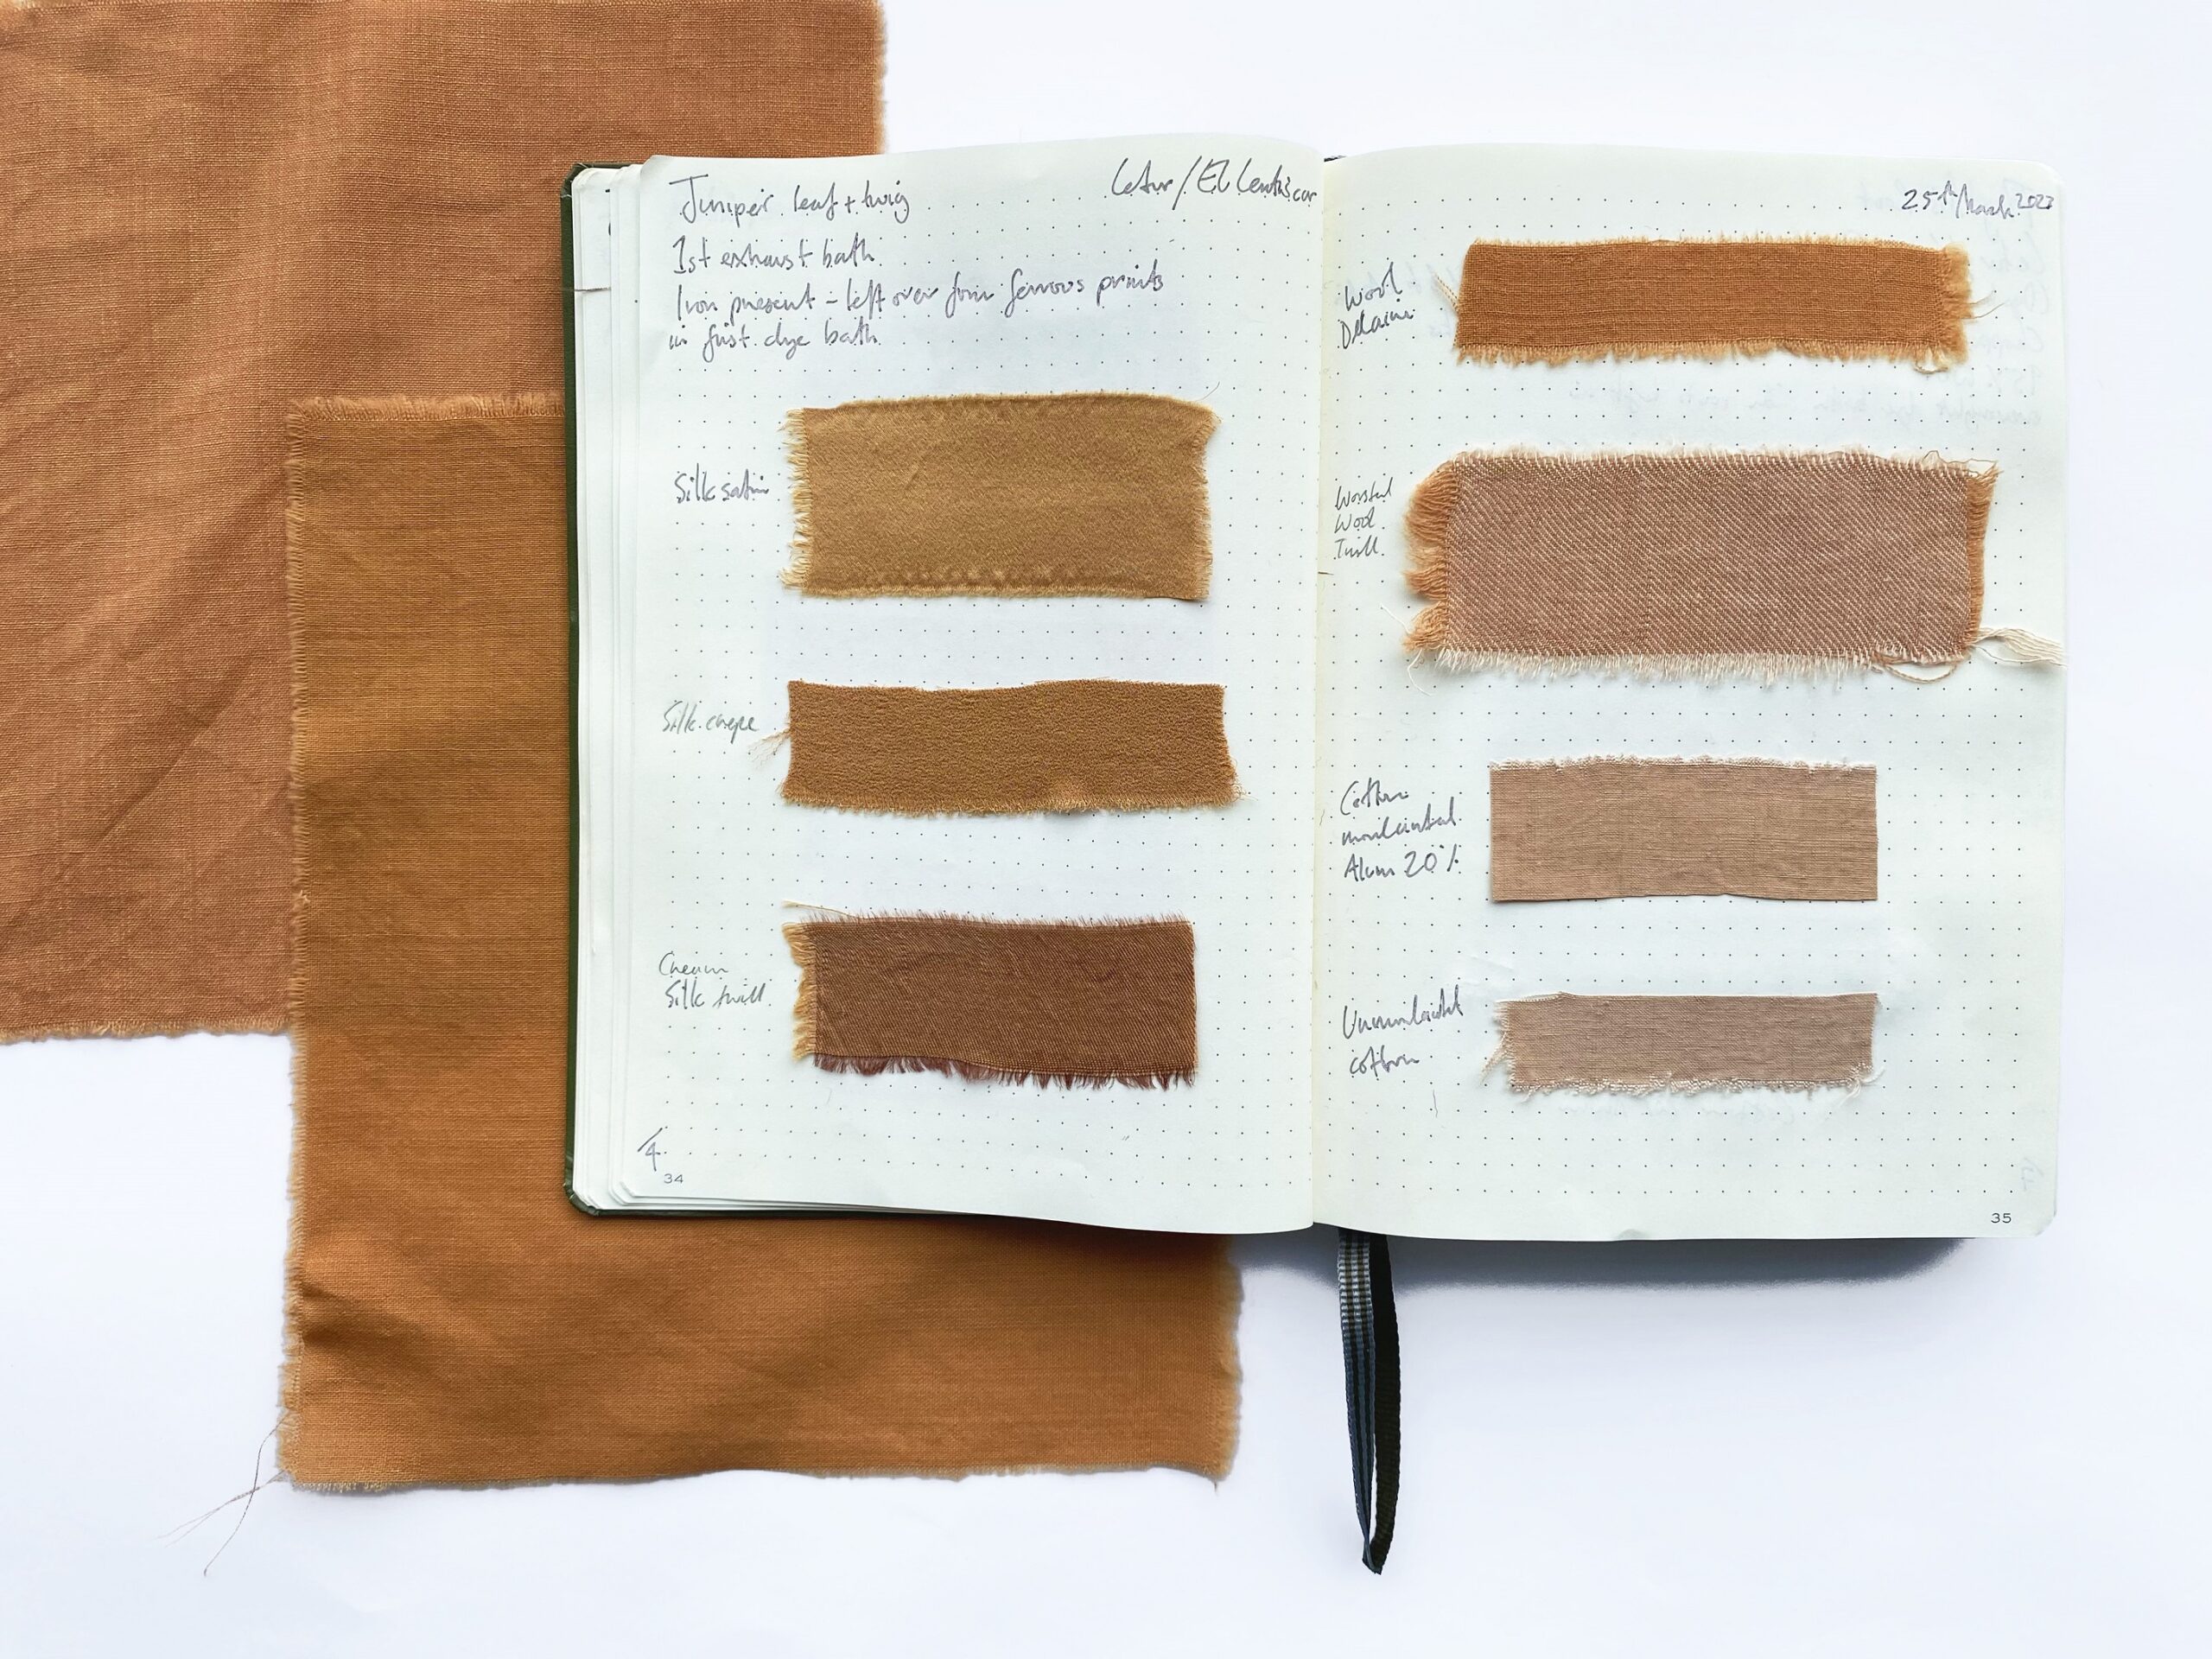 Juniper leaf + twig
Letur / El Lentiscar
1st exhaust bath
Iron present - left over from ferrous prints
in first dye bath
Silk satin
Silk crepe
Cream
Silk twill
4
34
25th March 2023
Wool
Delaine
Worsted
Wool
Twill
Cotton
mordanted
Alum 20%
Unmordanted
cotton
35